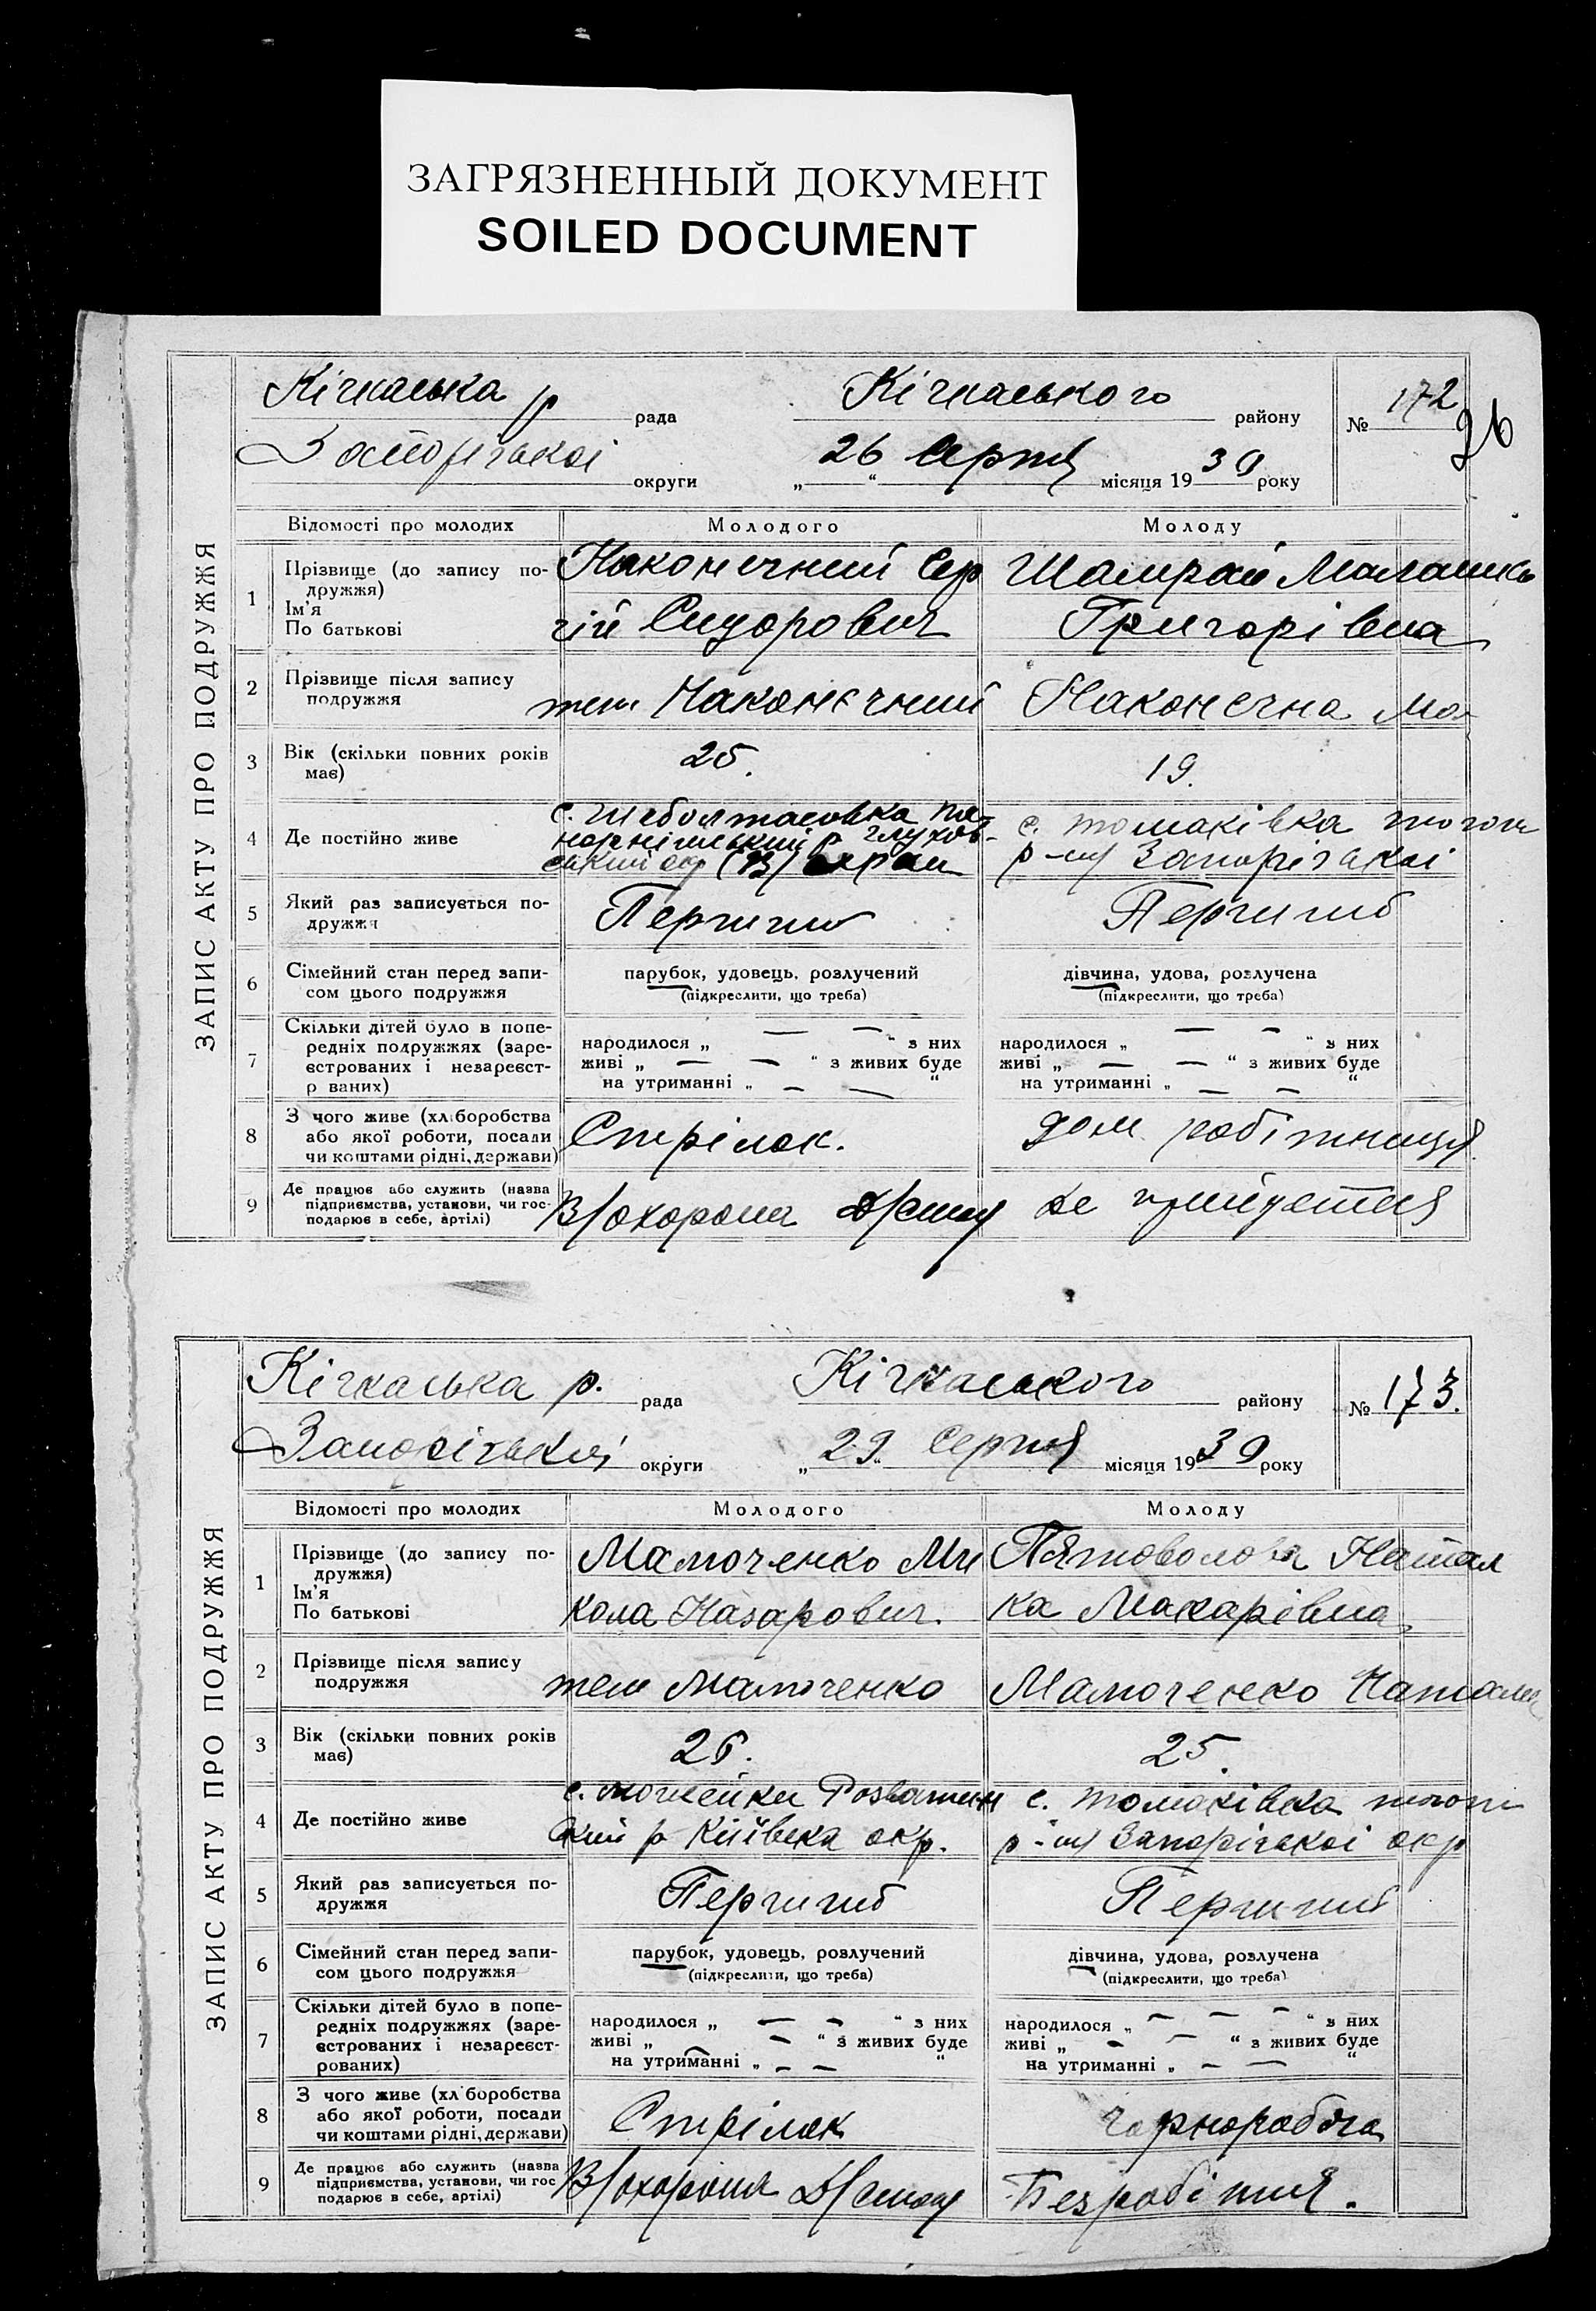 ЗАГРЯЗНЕННЫЙ ДОКУМЕНТ
SOILED DOCUMENT
ЗАПИС АКТУ ПРО ПОДРУЖЖЯ
Кічкаська р рада Кічкаського району № 172
26
Запорізької округи „26“ Серпня місяця 1930 року
Відомості про молодих Молодого Молоду
1 Прізвище (до запису по- Наконечний Сер Шамрай Маланка
дружжя)
Ім'я
По батькові гій Сидорович Григорівна
2 Прізвище після запису
подружжя теж Наконечний Наконечна Ма
3 Вік (скільки повних років 25. 19.
має)
4 Де постійно живе с. глухов- с. Томаківка тогож
ський окр р-ну Запорізької
5 Який раз записується по- Перший Перший
дружжя
6 Сімейний стан перед запи- парубок, удовець, розлучений дівчина, удова, розлучена
сом цього подружжя (підкреслити, що треба) (підкреслити, що треба)
7 Скільки дітей було в попе-
редніх подружжях (заре- народилося „ — — “ з них народилося „ — — “ з них
єстрованих і незареєст- живі „ — — “ з живих буде живі „ — — “ з живих буде
р ваних) на утриманні „ — — “ на утриманні „ — — “
8 З чого живе (хліборобства
або якої роботи, посади Стрілок. дом. робітниця
чи коштами рідні, держави)
9 Де працює або служить (назва
підприємства, установи, чи гос- В/охорона
подарює в себе, артілі)
ЗАПИС АКТУ ПРО ПОДРУЖЖЯ
Кічкаська р. рада Кічкаського району № 173.
Запорізької округи „29“ Серпня місяця 1930 року
Відомості про молодих Молодого Молоду
1 Прізвище (до запису по- Мамченко Ми Натал
дружжя)
Ім'я
По батькові кола Назарович. ка Макарівна
2 Прізвище після запису
подружжя теж
3 Вік (скільки повних років 26. 25.
має)
4 Де постійно живе с. с. Томаківка тогож
р Київська окр. р-ну Запорізької окр
5 Який раз записується по- Перший Перший
дружжя
6 Сімейний стан перед запи- парубок, удовець, розлучений дівчина, удова, розлучена
сом цього подружжя (підкреслити, що треба) (підкреслити, що треба)
7 Скільки дітей було в попе-
редніх подружжях (заре- народилося „ — — “ з них народилося „ — — — “ з них
єстрованих і незареєст- живі „ — — “ з живих буде живі „ — — “ з живих буде
рованих) на утриманні „ — — “ на утриманні „ — — “
8 З чого живе (хл боробства
або якої роботи, посади Стрілок чорнороб
чи коштами рідні, держави)
9 Де працює або служить (назва
підприємства, установи, чи гос В/охорона Безробітня.
подарює в себе, артілі)